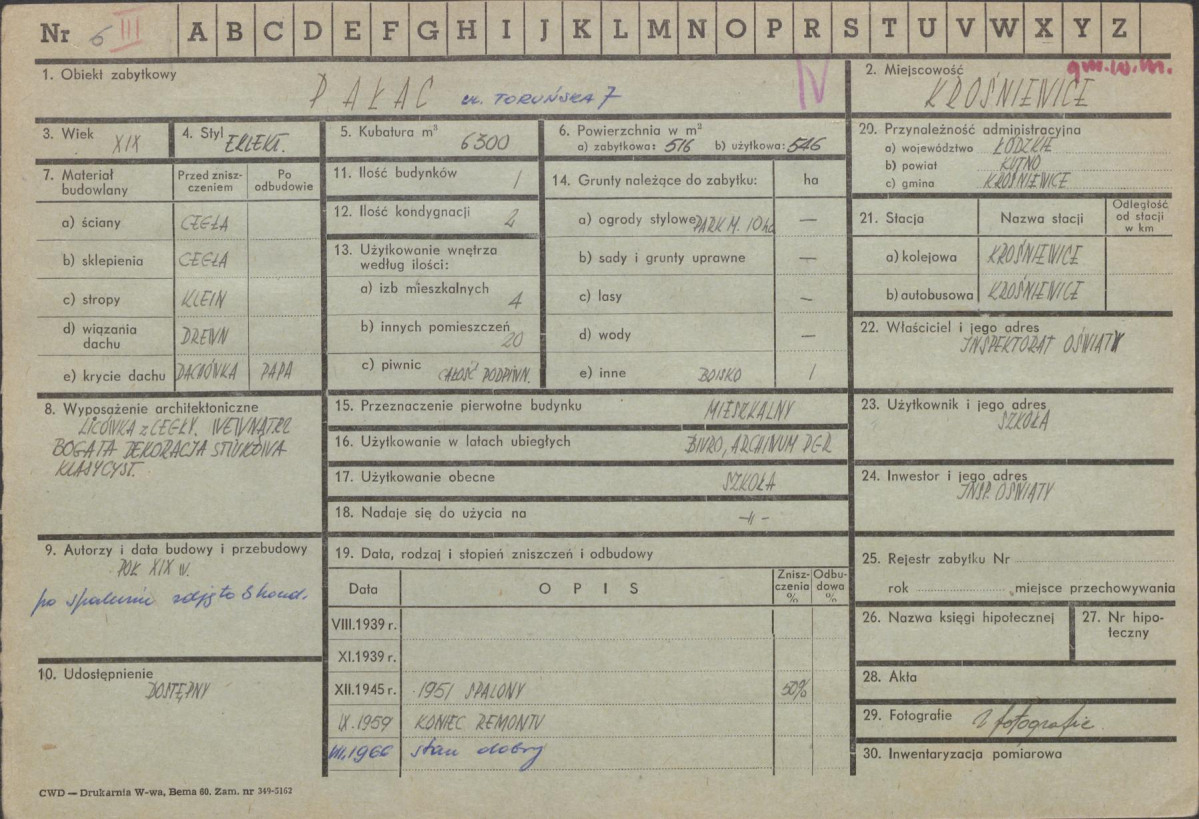 Nr 6 III A B C D E F G H I J K L M N O P R S T U V W X Y Z
1. Obiekt zabytkowy
PAŁAC ul. TORUŃSKA 7 IV
2. Miejscowość gm.w.m.
KROŚNIEWICE
3. Wiek XIX
4. Styl EKLEKT.
5. Kubatura m³ 6300
6. Powierzchnia w m²
a) zabytkowa: 516 b) użytkowa: 546
7. Materiał budowlany
Przed zniszczeniem
Po odbudowie
a) ściany CEGŁA
b) sklepienia CEGŁA
c) stropy KLEIN
d) wiązania dachu DREWN
e) krycie dachu DACHÓWKA PAPA
8. Wyposażenie architektoniczne
LICÓWKA z CEGŁY. WEWNĄTRZ
BOGATA DEKORACJA STIUKOWA
KLASYCYST.
9. Autorzy i data budowy i przebudowy
POŁ XIX w.
po spaleniu zdjęto kond.
10. Udostępnienie
DOSTĘPNY
11. Ilość budynków 1
12. Ilość kondygnacji 2
13. Użytkowanie wnętrza
według ilości:
a) izb mieszkalnych 4
b) innych pomieszczeń 20
c) piwnic CAŁOŚĆ PODPIWN.
14. Grunty należące do zabytku: ha
a) ogrody stylowe PARK M. 10 ha —
b) sady i grunty uprawne —
c) lasy —
d) wody —
e) inne BOISKO 1
15. Przeznaczenie pierwotne budynku MIESZKALNY
16. Użytkowanie w latach ubiegłych BIURO, ARCHIWUM PGR
17. Użytkowanie obecne SZKOŁA
18. Nadaje się do użycia na -"-
19. Data, rodzaj i stopień zniszczeń i odbudowy
Data OPIS Zniszczenia % Odbudowa %
VIII.1939 r.
XI.1939 r.
XII.1945 r. 1951 SPALONY 50%
IX.1959 KONIEC REMONTU
VII.1966 stan dobry
20. Przynależność administracyjna
a) województwo ŁÓDZKIE
b) powiat KUTNO
c) gmina KROŚNIEWICE
21. Stacja Nazwa stacji Odległość od stacji w km
a) kolejowa KROŚNIEWICE
b) autobusowa KROŚNIEWICE
22. Właściciel i jego adres
INSPEKTORAT OŚWIATY
23. Użytkownik i jego adres
SZKOŁA
24. Inwestor i jego adres
INSP. OŚWIATY
25. Rejestr zabytku Nr
rok miejsce przechowywania
26. Nazwa księgi hipotecznej
27. Nr hipoteczny
28. Akta
29. Fotografie 2 fotografie
30. Inwentaryzacja pomiarowa
CWD — Drukarnia W-wa, Bema 60. Zam. nr 349-5162